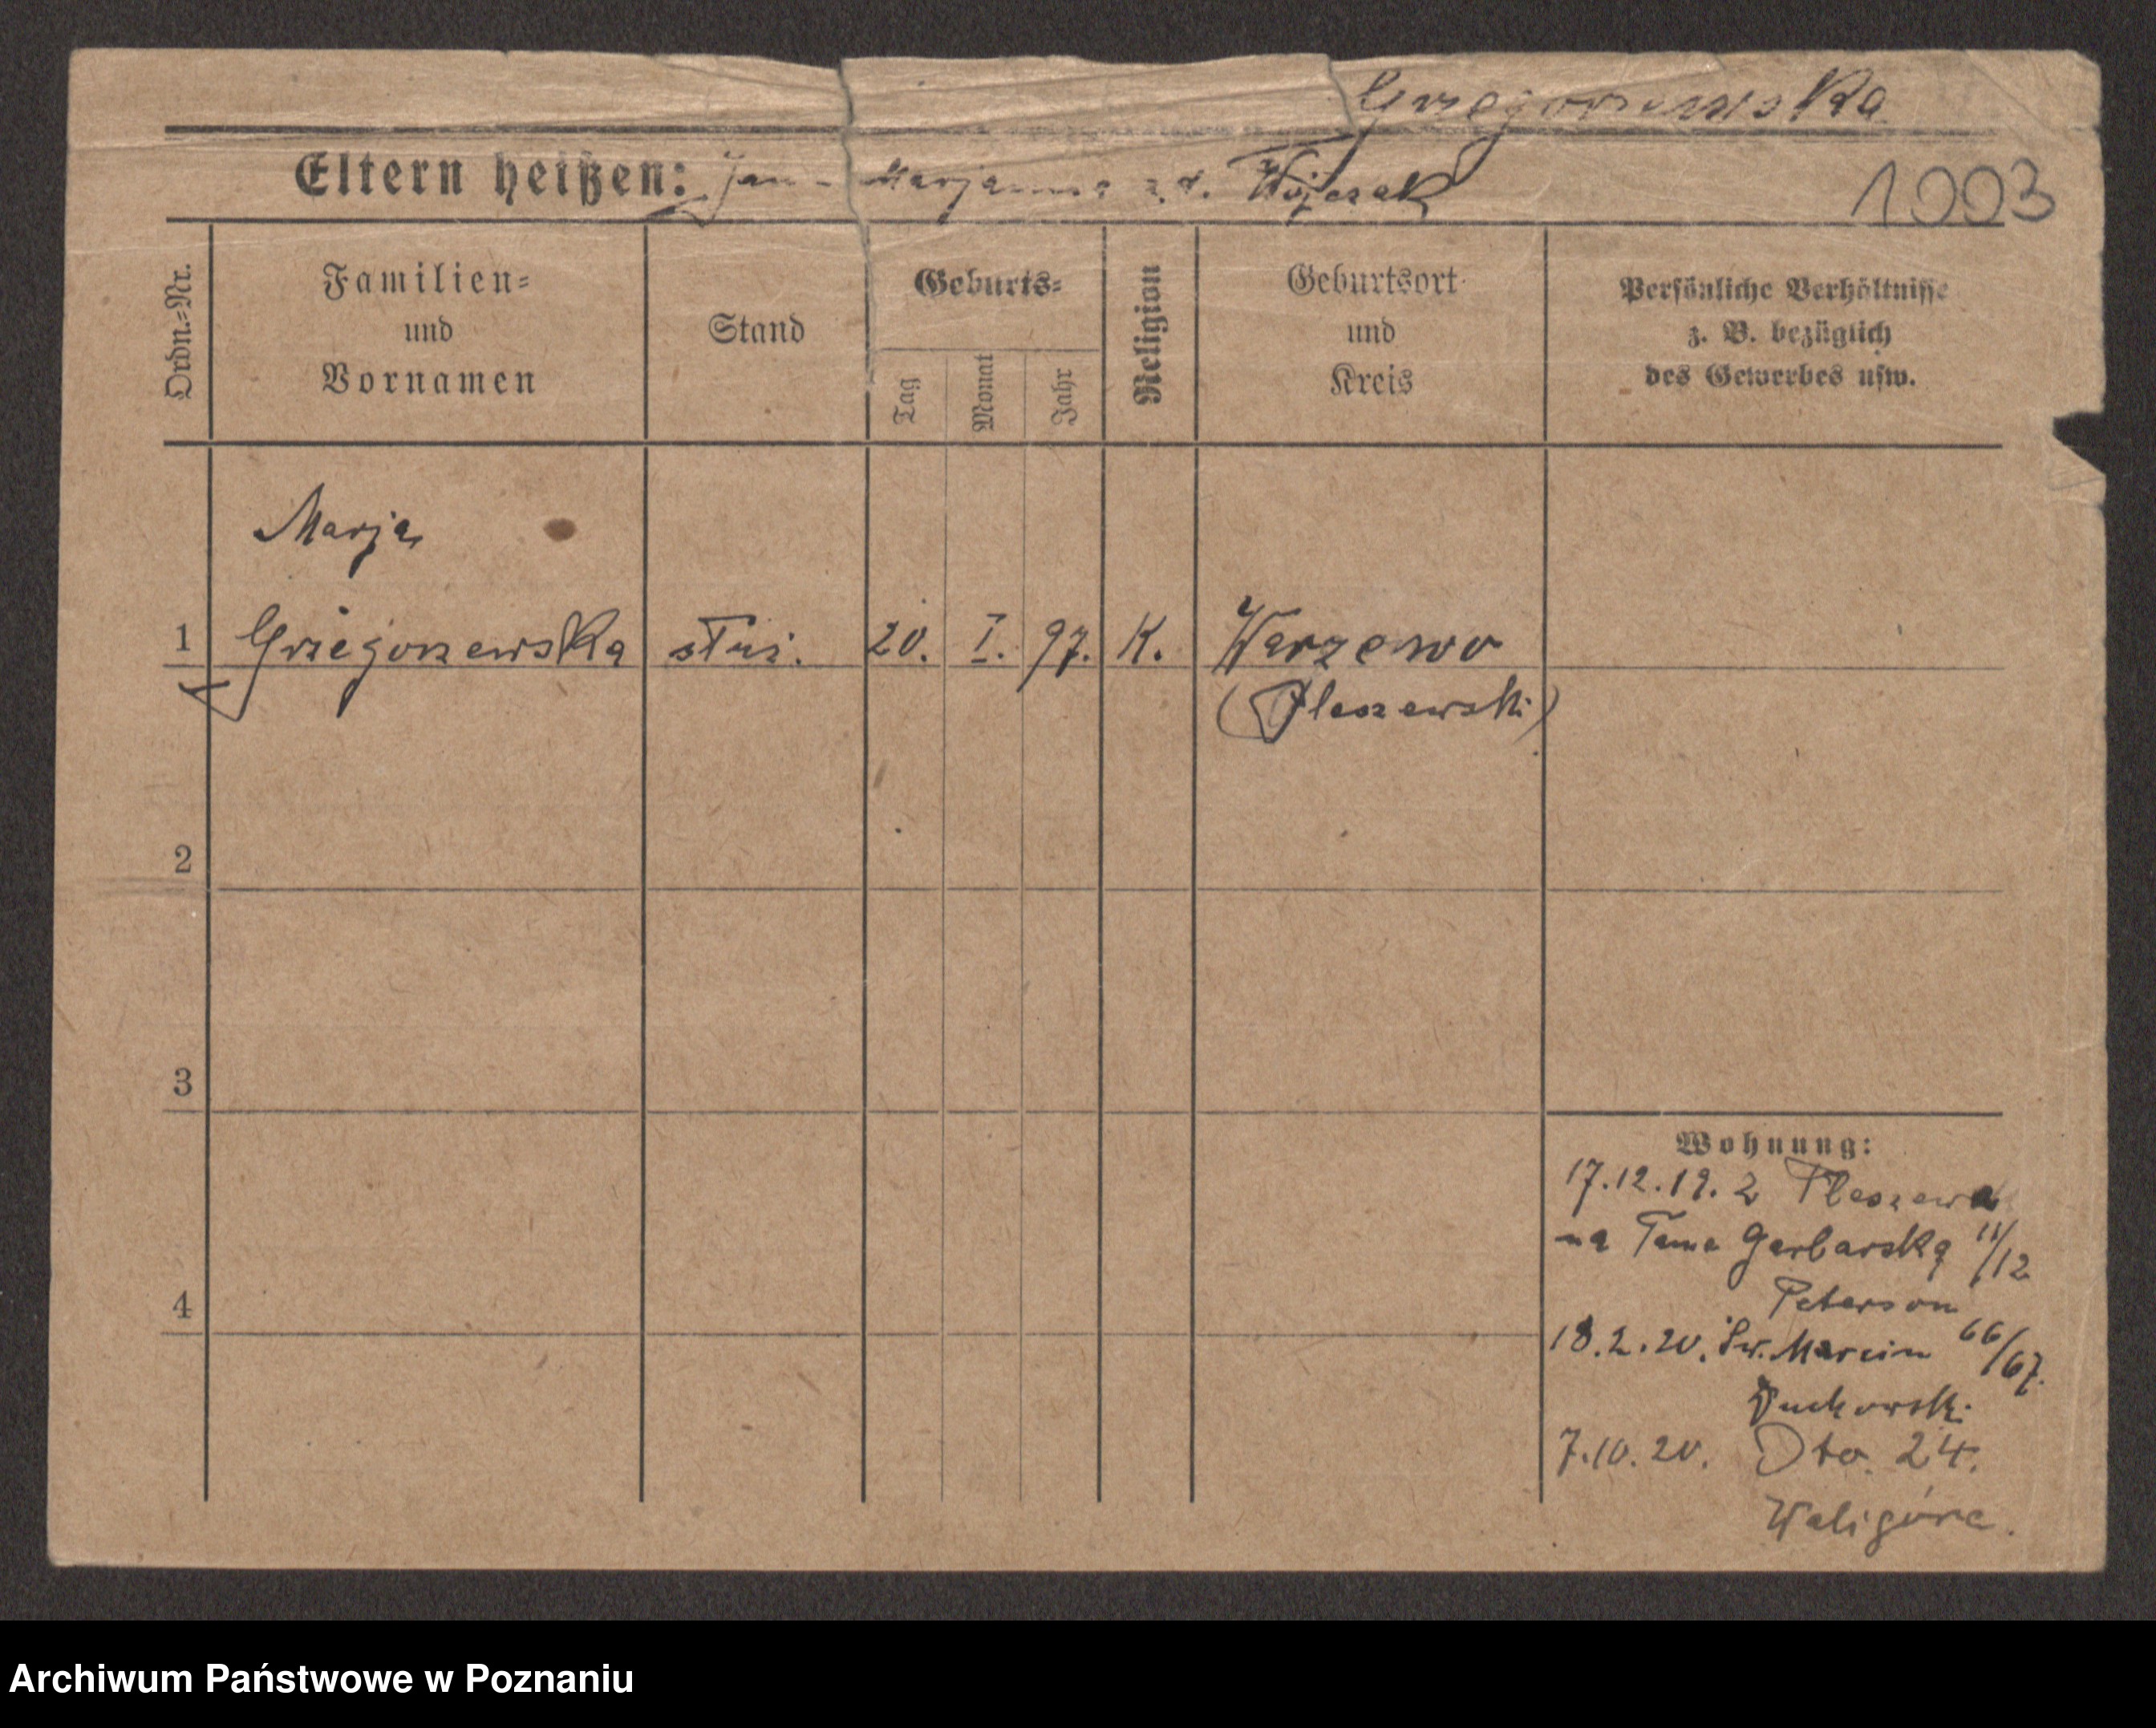 Grzegorzewska
Eltern heißen: Jan - Marjanna z d. Wojczak
1003
Ordn.=Nr.
Familien=
und
Vornamen
Stand
Geburts=
Tag
Monat
Jahr
Religion
Geburtsort
und
Kreis
Persönliche Verhältnisse
z. B. bezüglich
des Gewerbes usw.
Marja
1 Grzegorzewska służ. 20. I. 97. K. Warzewo
(Pleszewski)
2
3
4
Wohnung:
17.12.19. z Pleszewa
na Tama Garbarska 11/12
Peterson
18.2.20. Św. Marcin 66/67.
7.10.20. Dto. 24.
Waligóra.
Archiwum Państwowe w Poznaniu